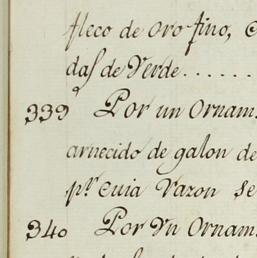 fleco de oro fino, C
das de Verde......
339 Por un Ornam.
arnecido de galon de
pr. cuia razon se
340 Por Vn Ornam.